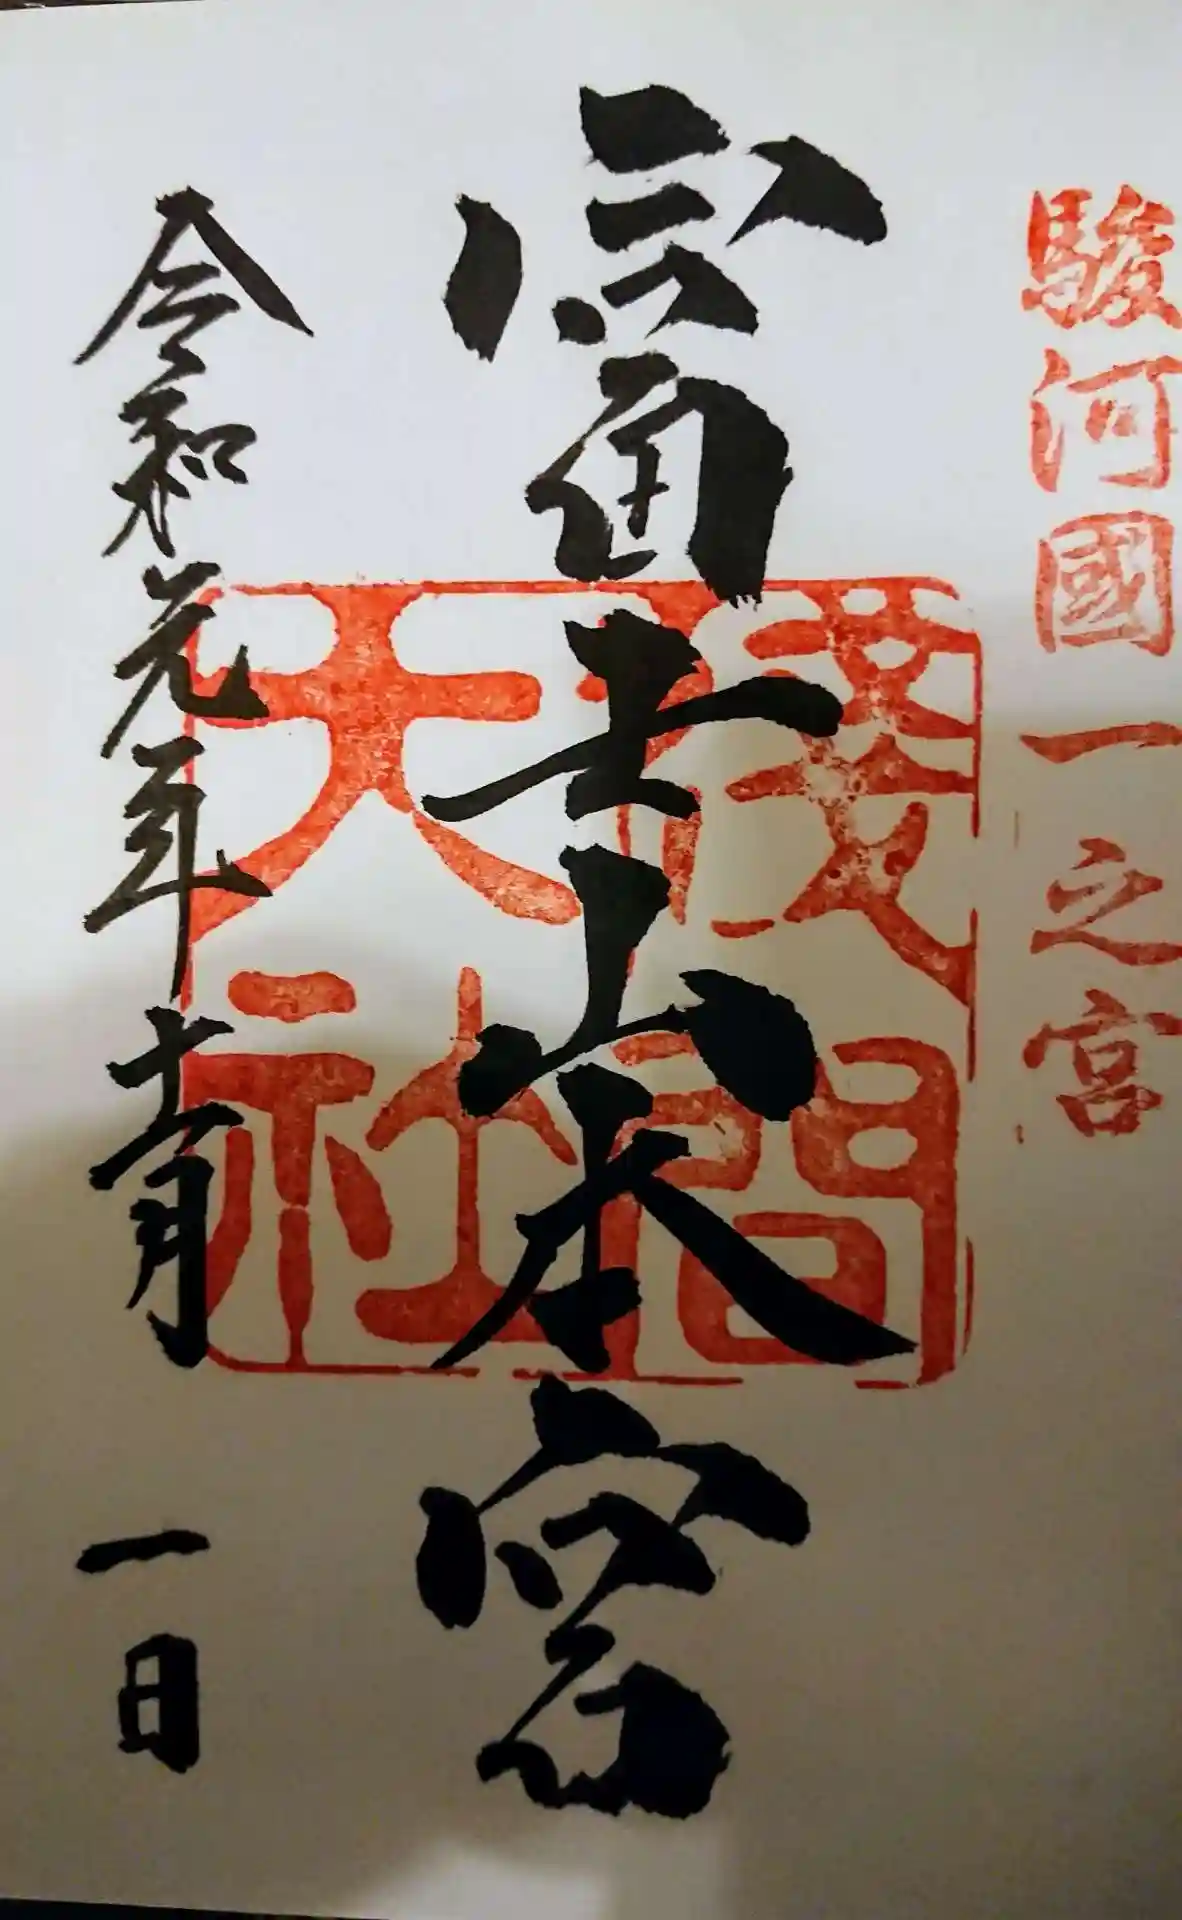 駿河國一之宮
富士山本宮
淺間
大社
令和元年十一月一日